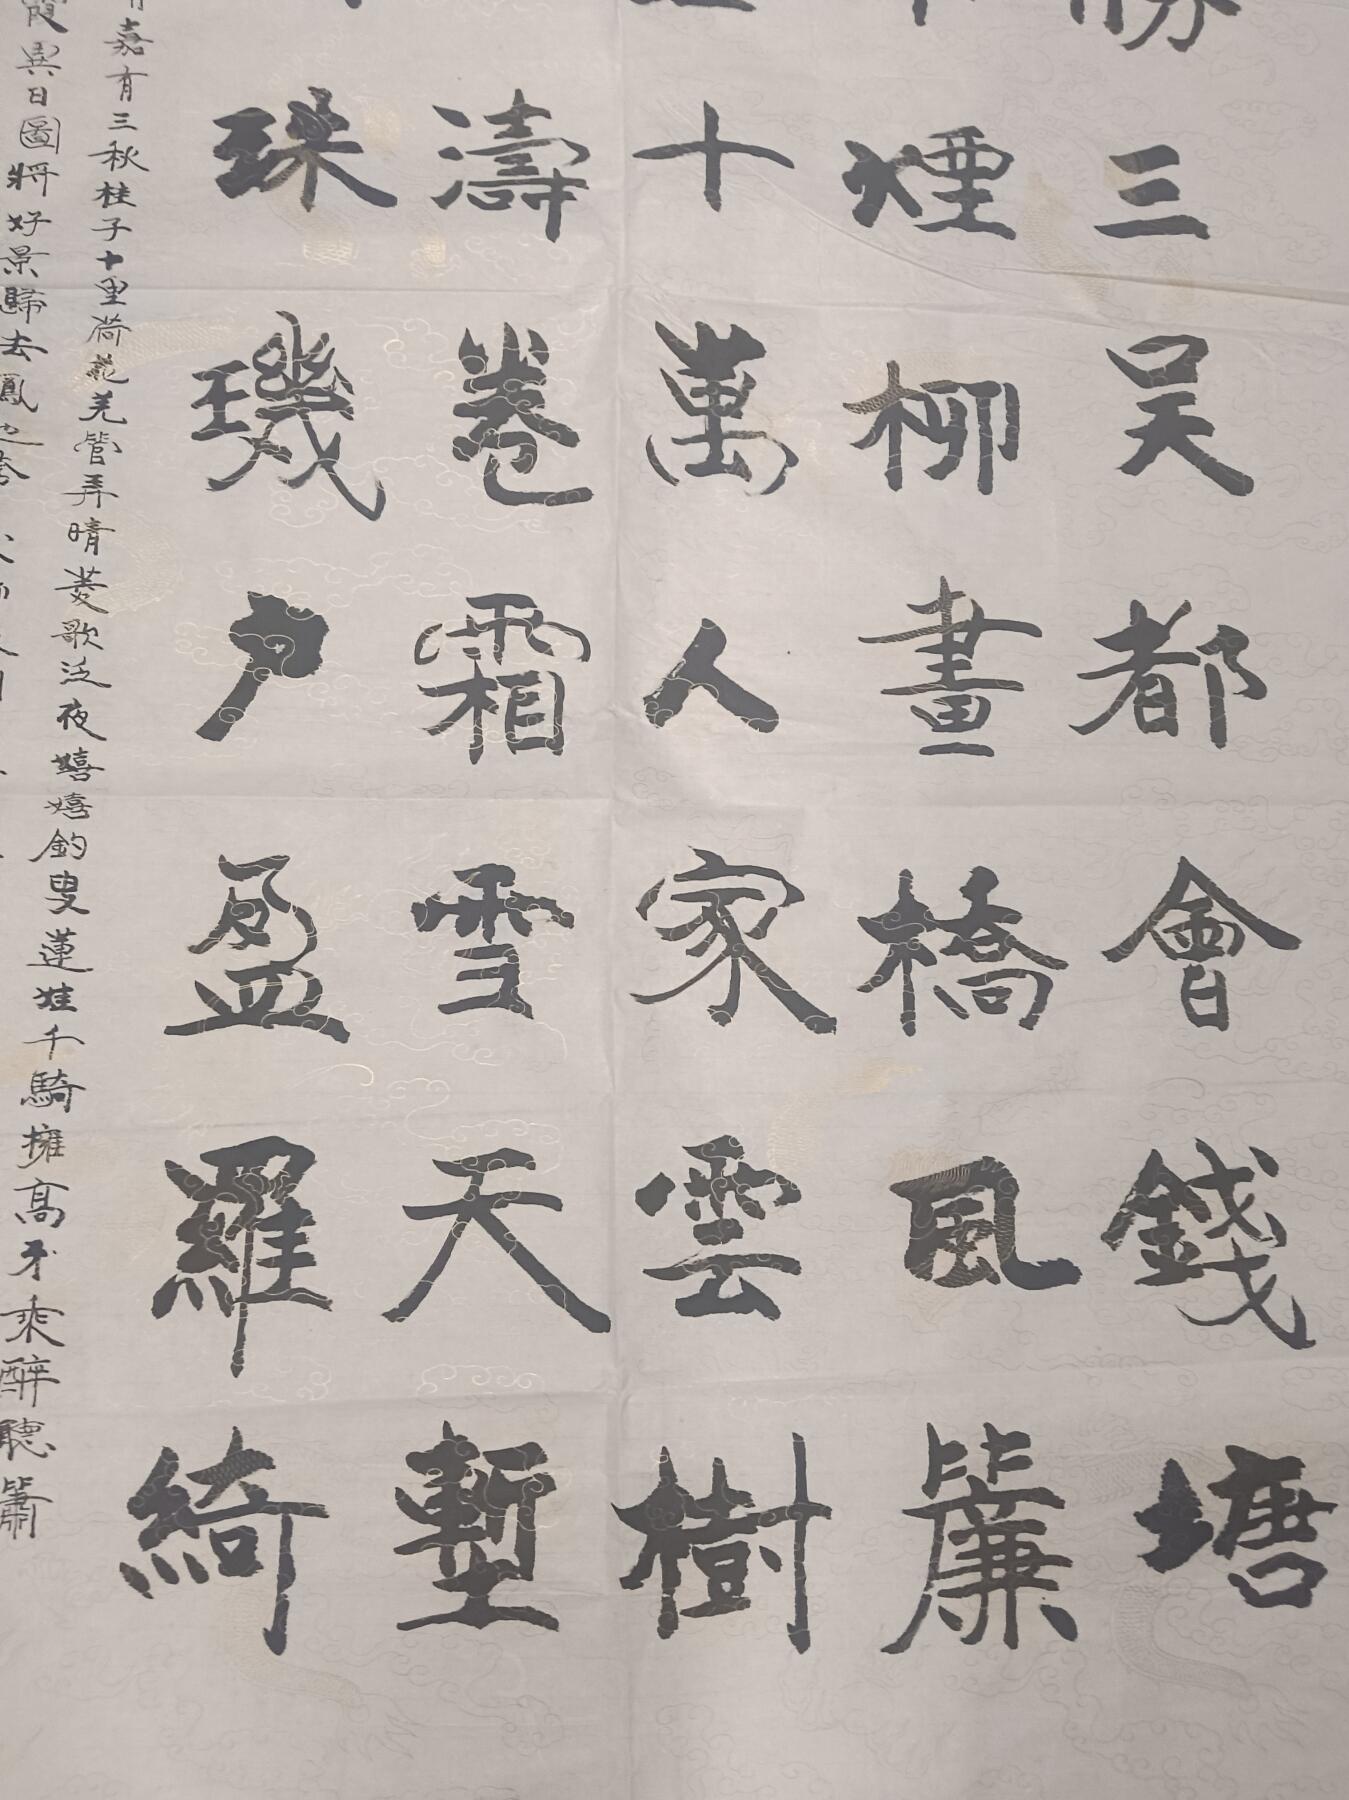 勝三吳都會錢塘
煙柳畫橋風簾
十萬人家雲樹
濤卷霜雪天塹
珠璣戶盈羅綺
嘉有三秋桂子十里荷花羌管弄晴菱歌泛夜嬉嬉釣叟蓮娃千騎擁高牙乘醉聽簫
霞異日圖將好景歸去鳳池誇